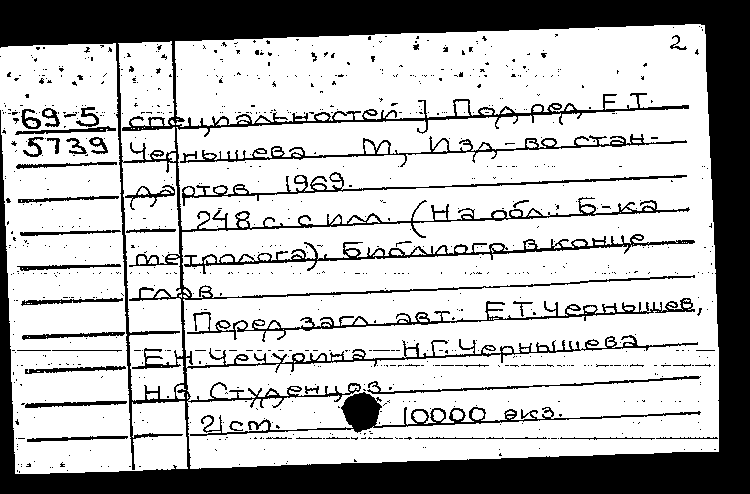 2
69-5 специальностей]. Под ред. Е.Т.
5739 Чернышева. М., Изд-во стан-
дартов, 1969.
248 с. с илл. (На обл.: Б-ка
метролога). Библиогр. в конце
глав.
Перед загл. авт.: Е.Т. Чернышев,
Е.Н. Чечурина, Н.Г. Чернышева,
Н.В. Студенцов.
21 см. 10000 экз.